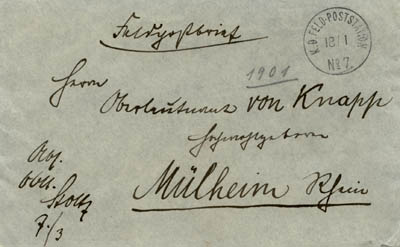 Feldpostbrief
K.D. FELD-POSTSTATION
18/1
No 7.
1901
Herrn
Oberleutnant von Knapp
Hochwohlgeboren
Mülheim Rhein
Abs.
Oblt.
Stoltz
7./3